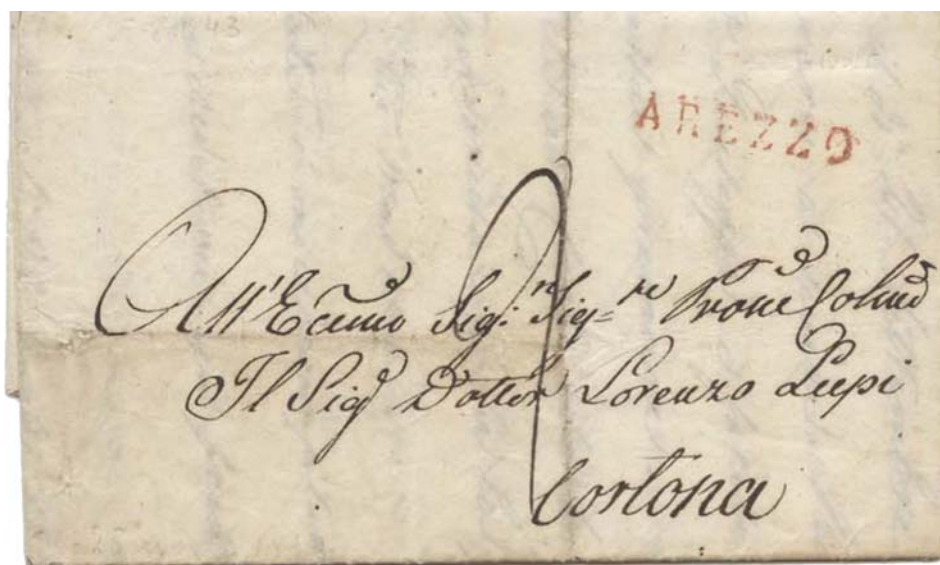 AREZZO
All'Eccmo Sig: Sig=re Prone Colmo
Il Sigr Dottor Lorenzo Lupi
Cortona